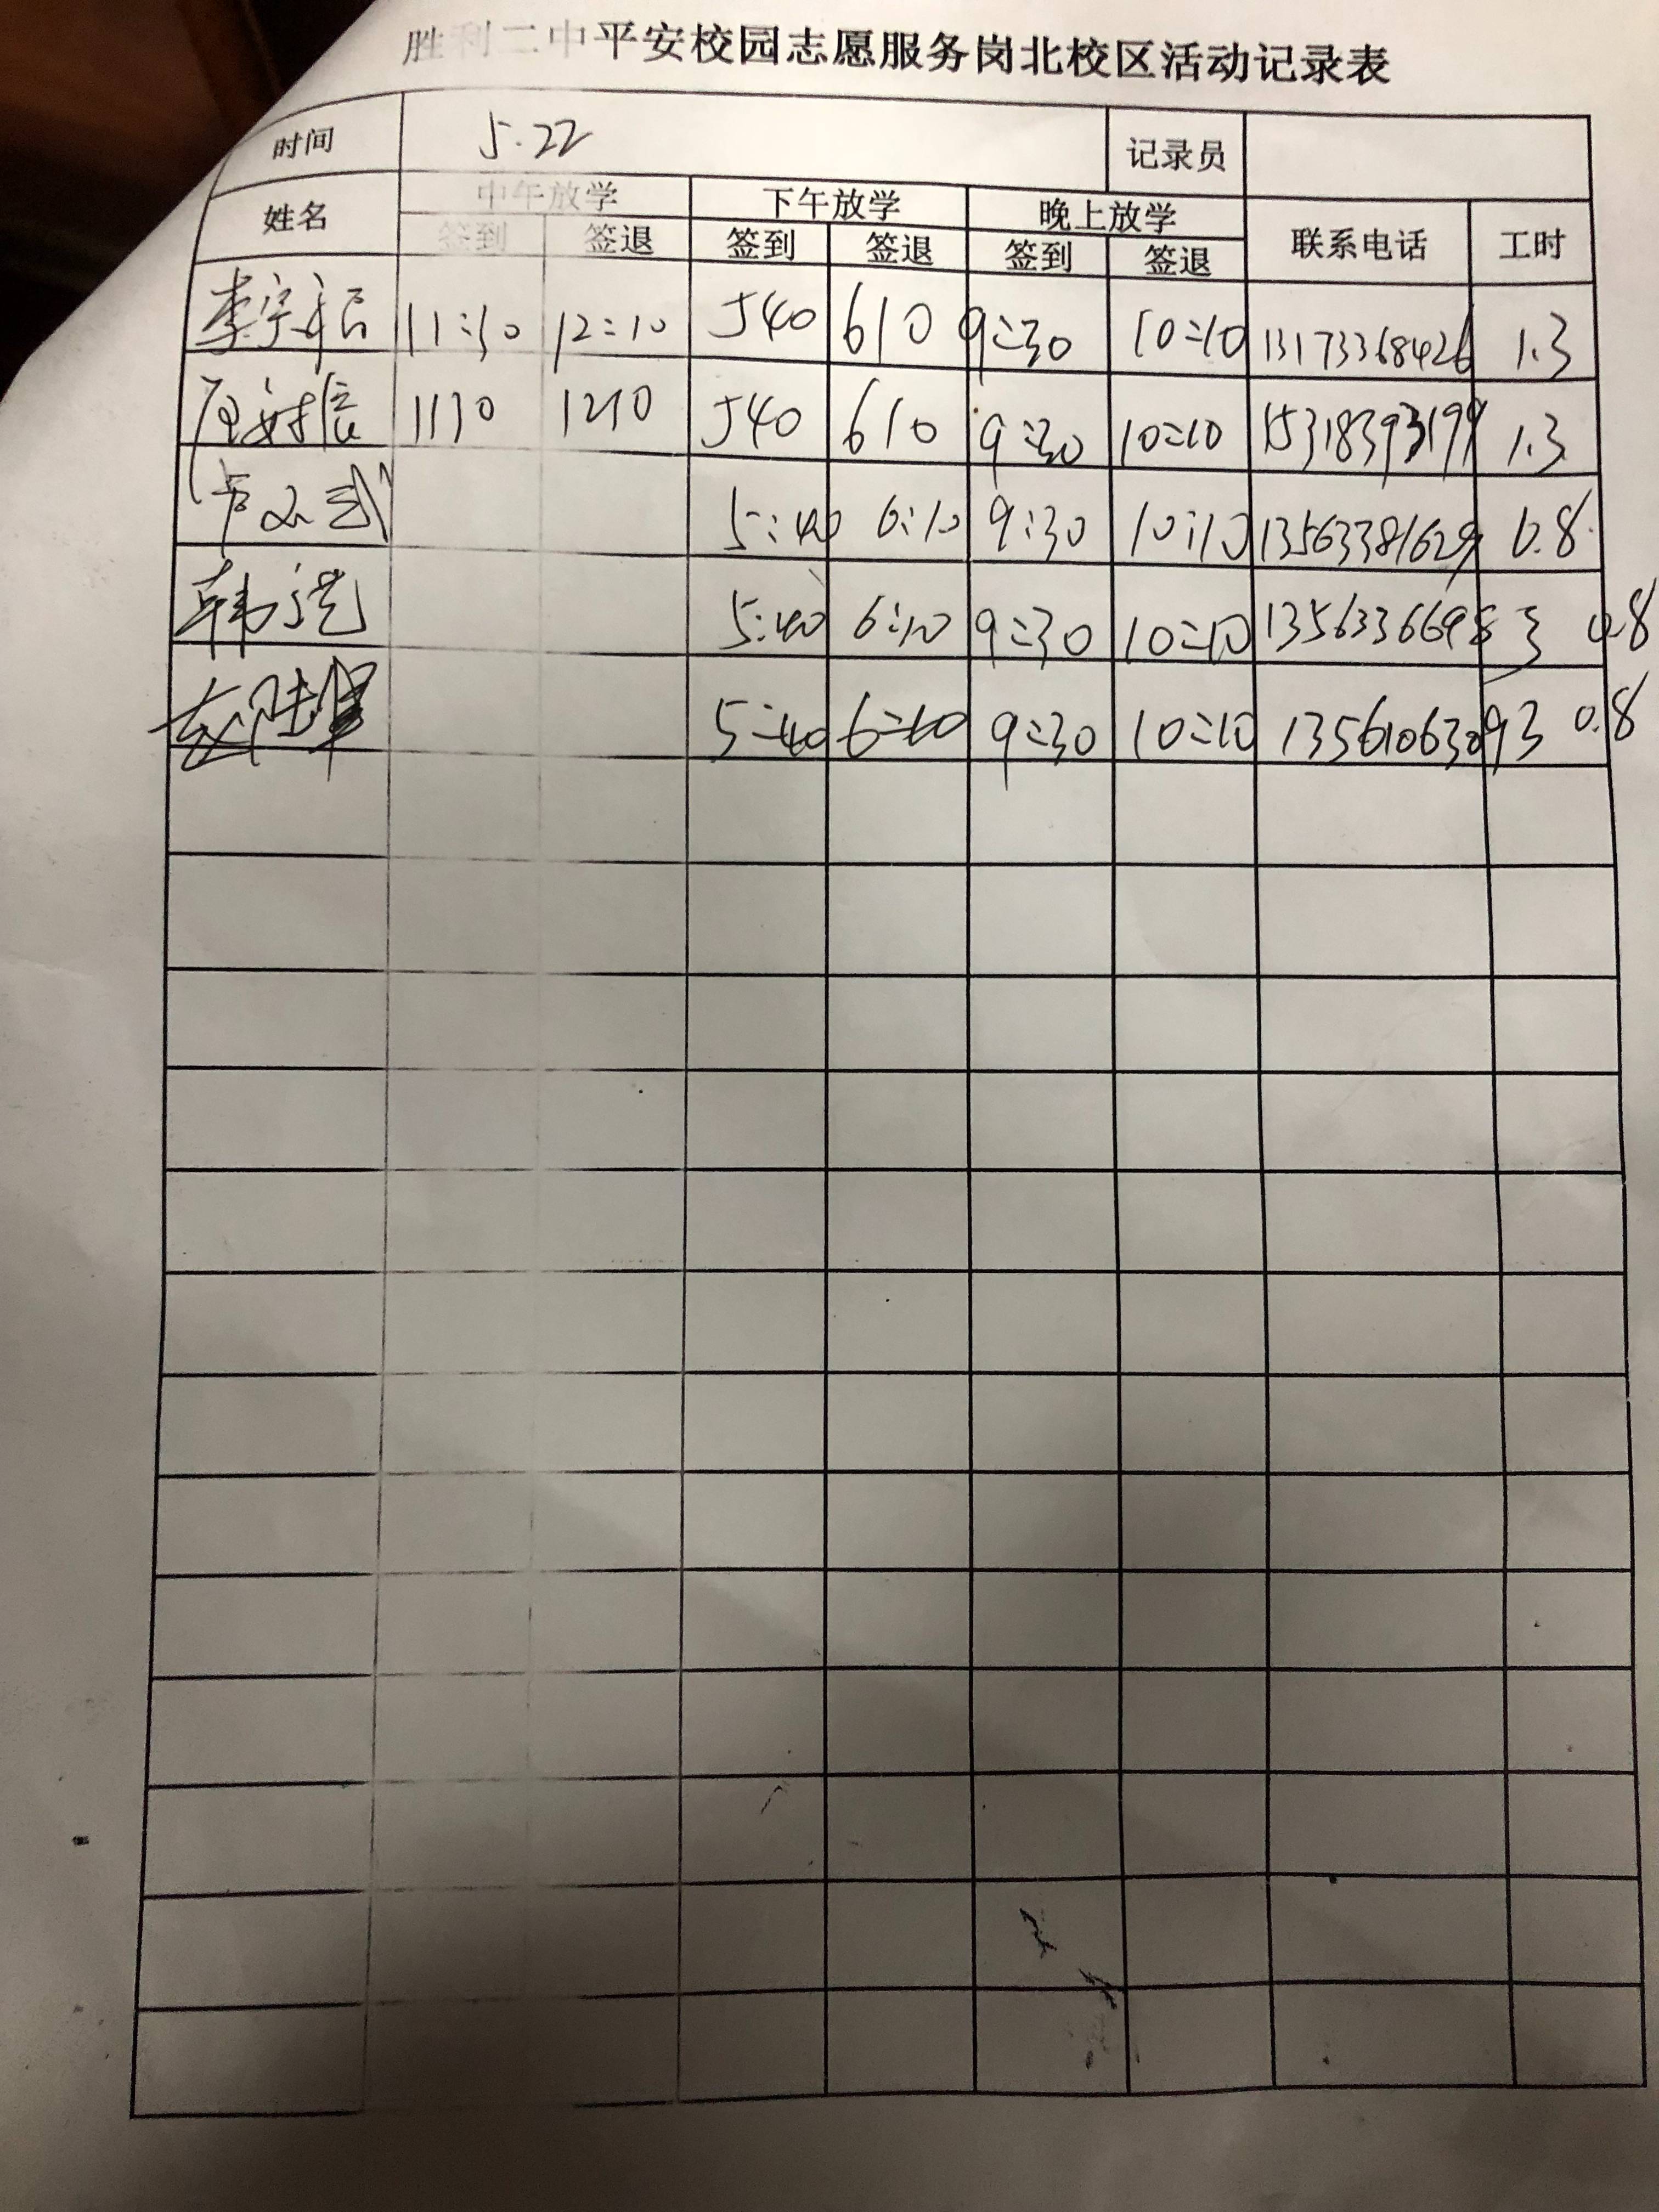 胜利二中平安校园志愿服务岗北校区活动记录表
时间 5.22 记录员
姓名 中午放学 下午放学 晚上放学 联系电话 工时
签到 签退 签到 签退 签到 签退
李宇辰 11:30 12:10 540 610 9:30 10:10 13173368426 1.3
1130 1210 540 610 9:30 10:10 15318393199 1.3
5:40 6:10 9:30 10:10 13563381629 0.8
韩 5:40 6:10 9:30 10:10 13563366983 0.8
5:40 6:10 9:30 10:10 13561063093 0.8